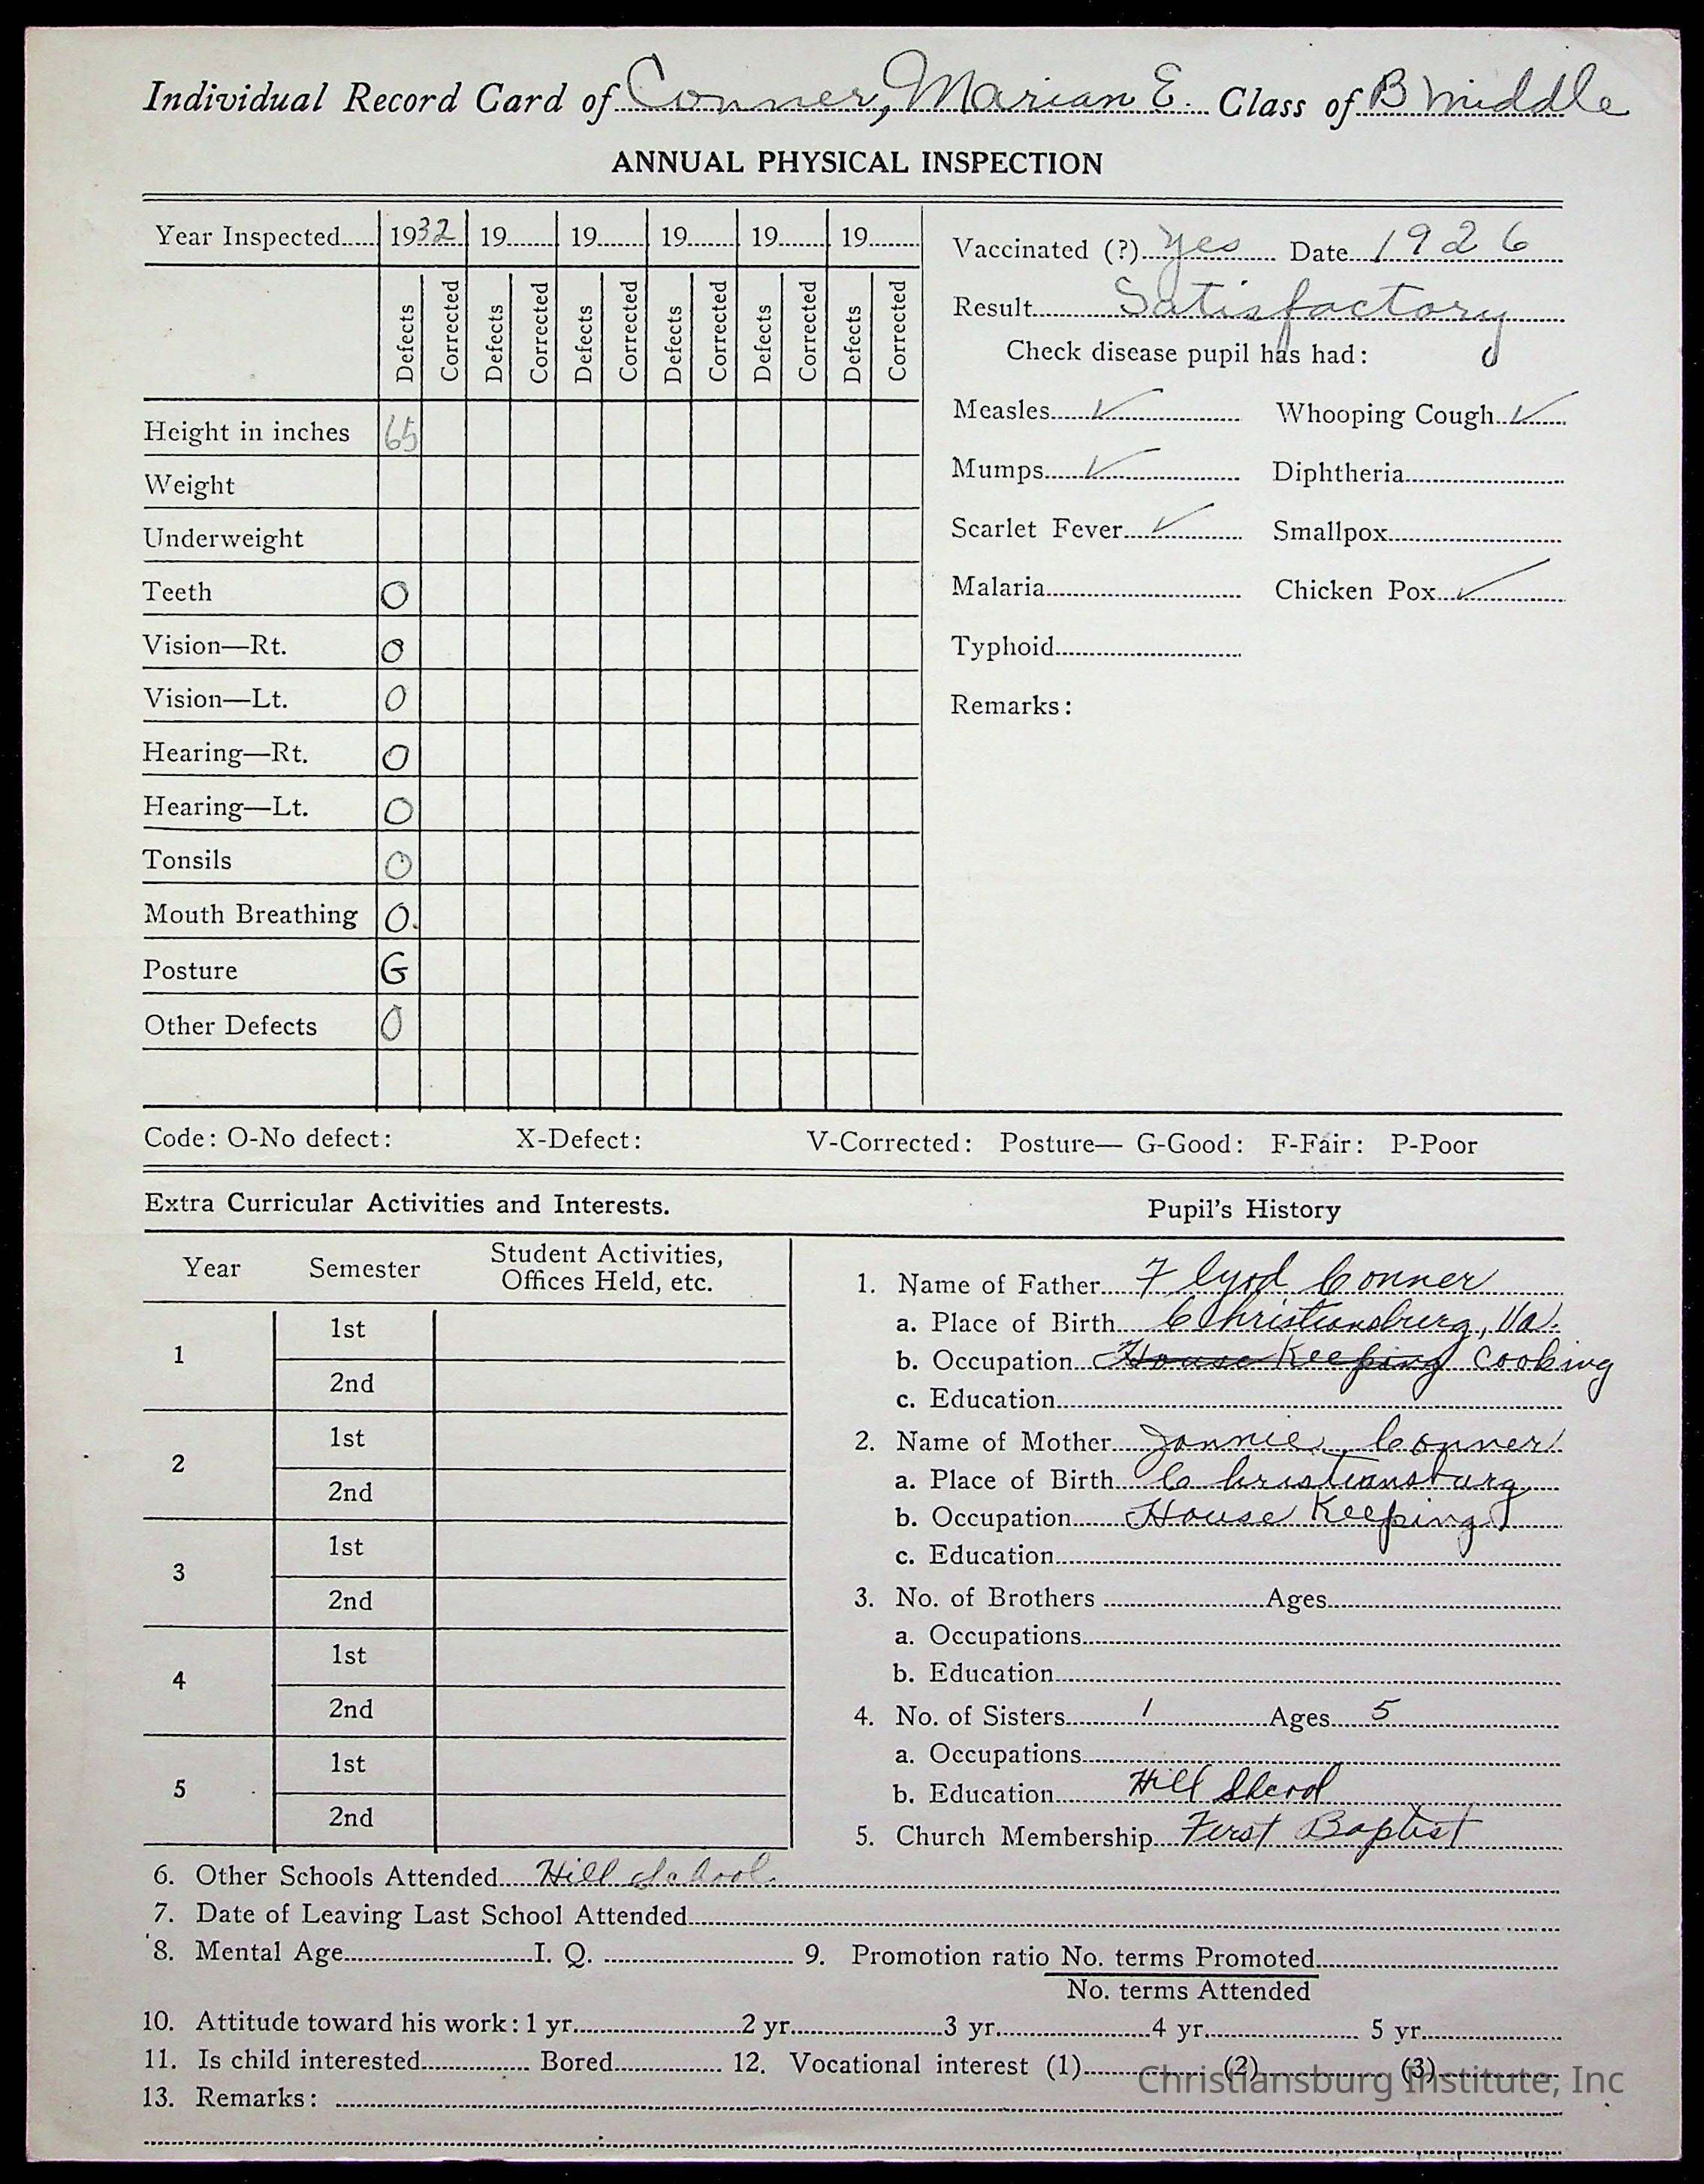 Individual Record Card of Conner, Marian E. Class of B Middle
ANNUAL PHYSICAL INSPECTION
Year Inspected..... 1932 19........ 19........ 19........ 19........ 19........
Defects Corrected Defects Corrected Defects Corrected Defects Corrected Defects Corrected Defects Corrected
Height in inches 65
Weight
Underweight
Teeth O
Vision—Rt. O
Vision—Lt. O
Hearing—Rt. O
Hearing—Lt. O
Tonsils O
Mouth Breathing O.
Posture G
Other Defects O
Vaccinated (?) yes Date 1926
Result Satisfactory
Check disease pupil has had:
Measles ✓ Whooping Cough ✓
Mumps ✓ Diphtheria
Scarlet Fever ✓ Smallpox
Malaria Chicken Pox ✓
Typhoid
Remarks:
Code: O-No defect: X-Defect: V-Corrected: Posture— G-Good: F-Fair: P-Poor
Extra Curricular Activities and Interests.
Year Semester Student Activities,
Offices Held, etc.
1 1st
2nd
2 1st
2nd
3 1st
2nd
4 1st
2nd
5 1st
2nd
Pupil's History
1. Name of Father Flyod Conner
a. Place of Birth Christiansburg, Va.
b. Occupation House Keeping Cooking
c. Education
2. Name of Mother Jannie Conner
a. Place of Birth Christiansburg
b. Occupation House Keeping
c. Education
3. No. of Brothers Ages
a. Occupations
b. Education
4. No. of Sisters 1 Ages 5
a. Occupations
b. Education Hill School
5. Church Membership First Baptist
6. Other Schools Attended Hill School
7. Date of Leaving Last School Attended
8. Mental Age I. Q. 9. Promotion ratio No. terms Promoted
No. terms Attended
10. Attitude toward his work: 1 yr. 2 yr. 3 yr. 4 yr. 5 yr.
11. Is child interested Bored 12. Vocational interest (1) (2) (3)
13. Remarks:
Christiansburg Institute, Inc